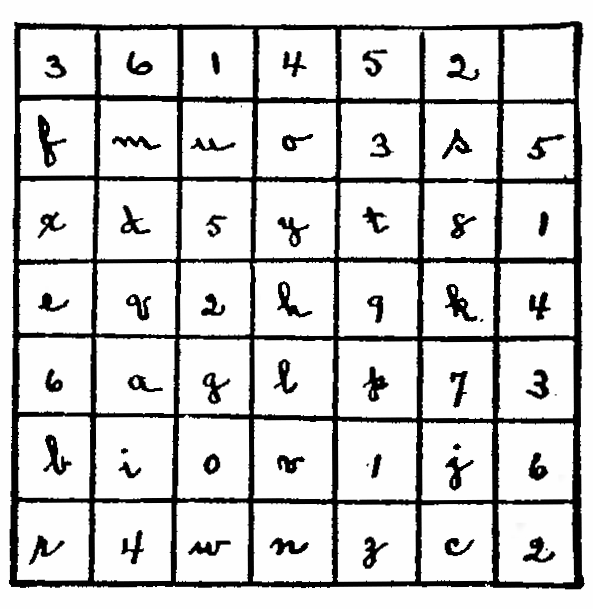 3 6 1 4 5 2
f m u o 3 s 5
x d 5 y t 8 1
e q 2 h 9 k 4
6 a g l p 7 3
b i 0 v 1 j 6
r 4 w n z c 2